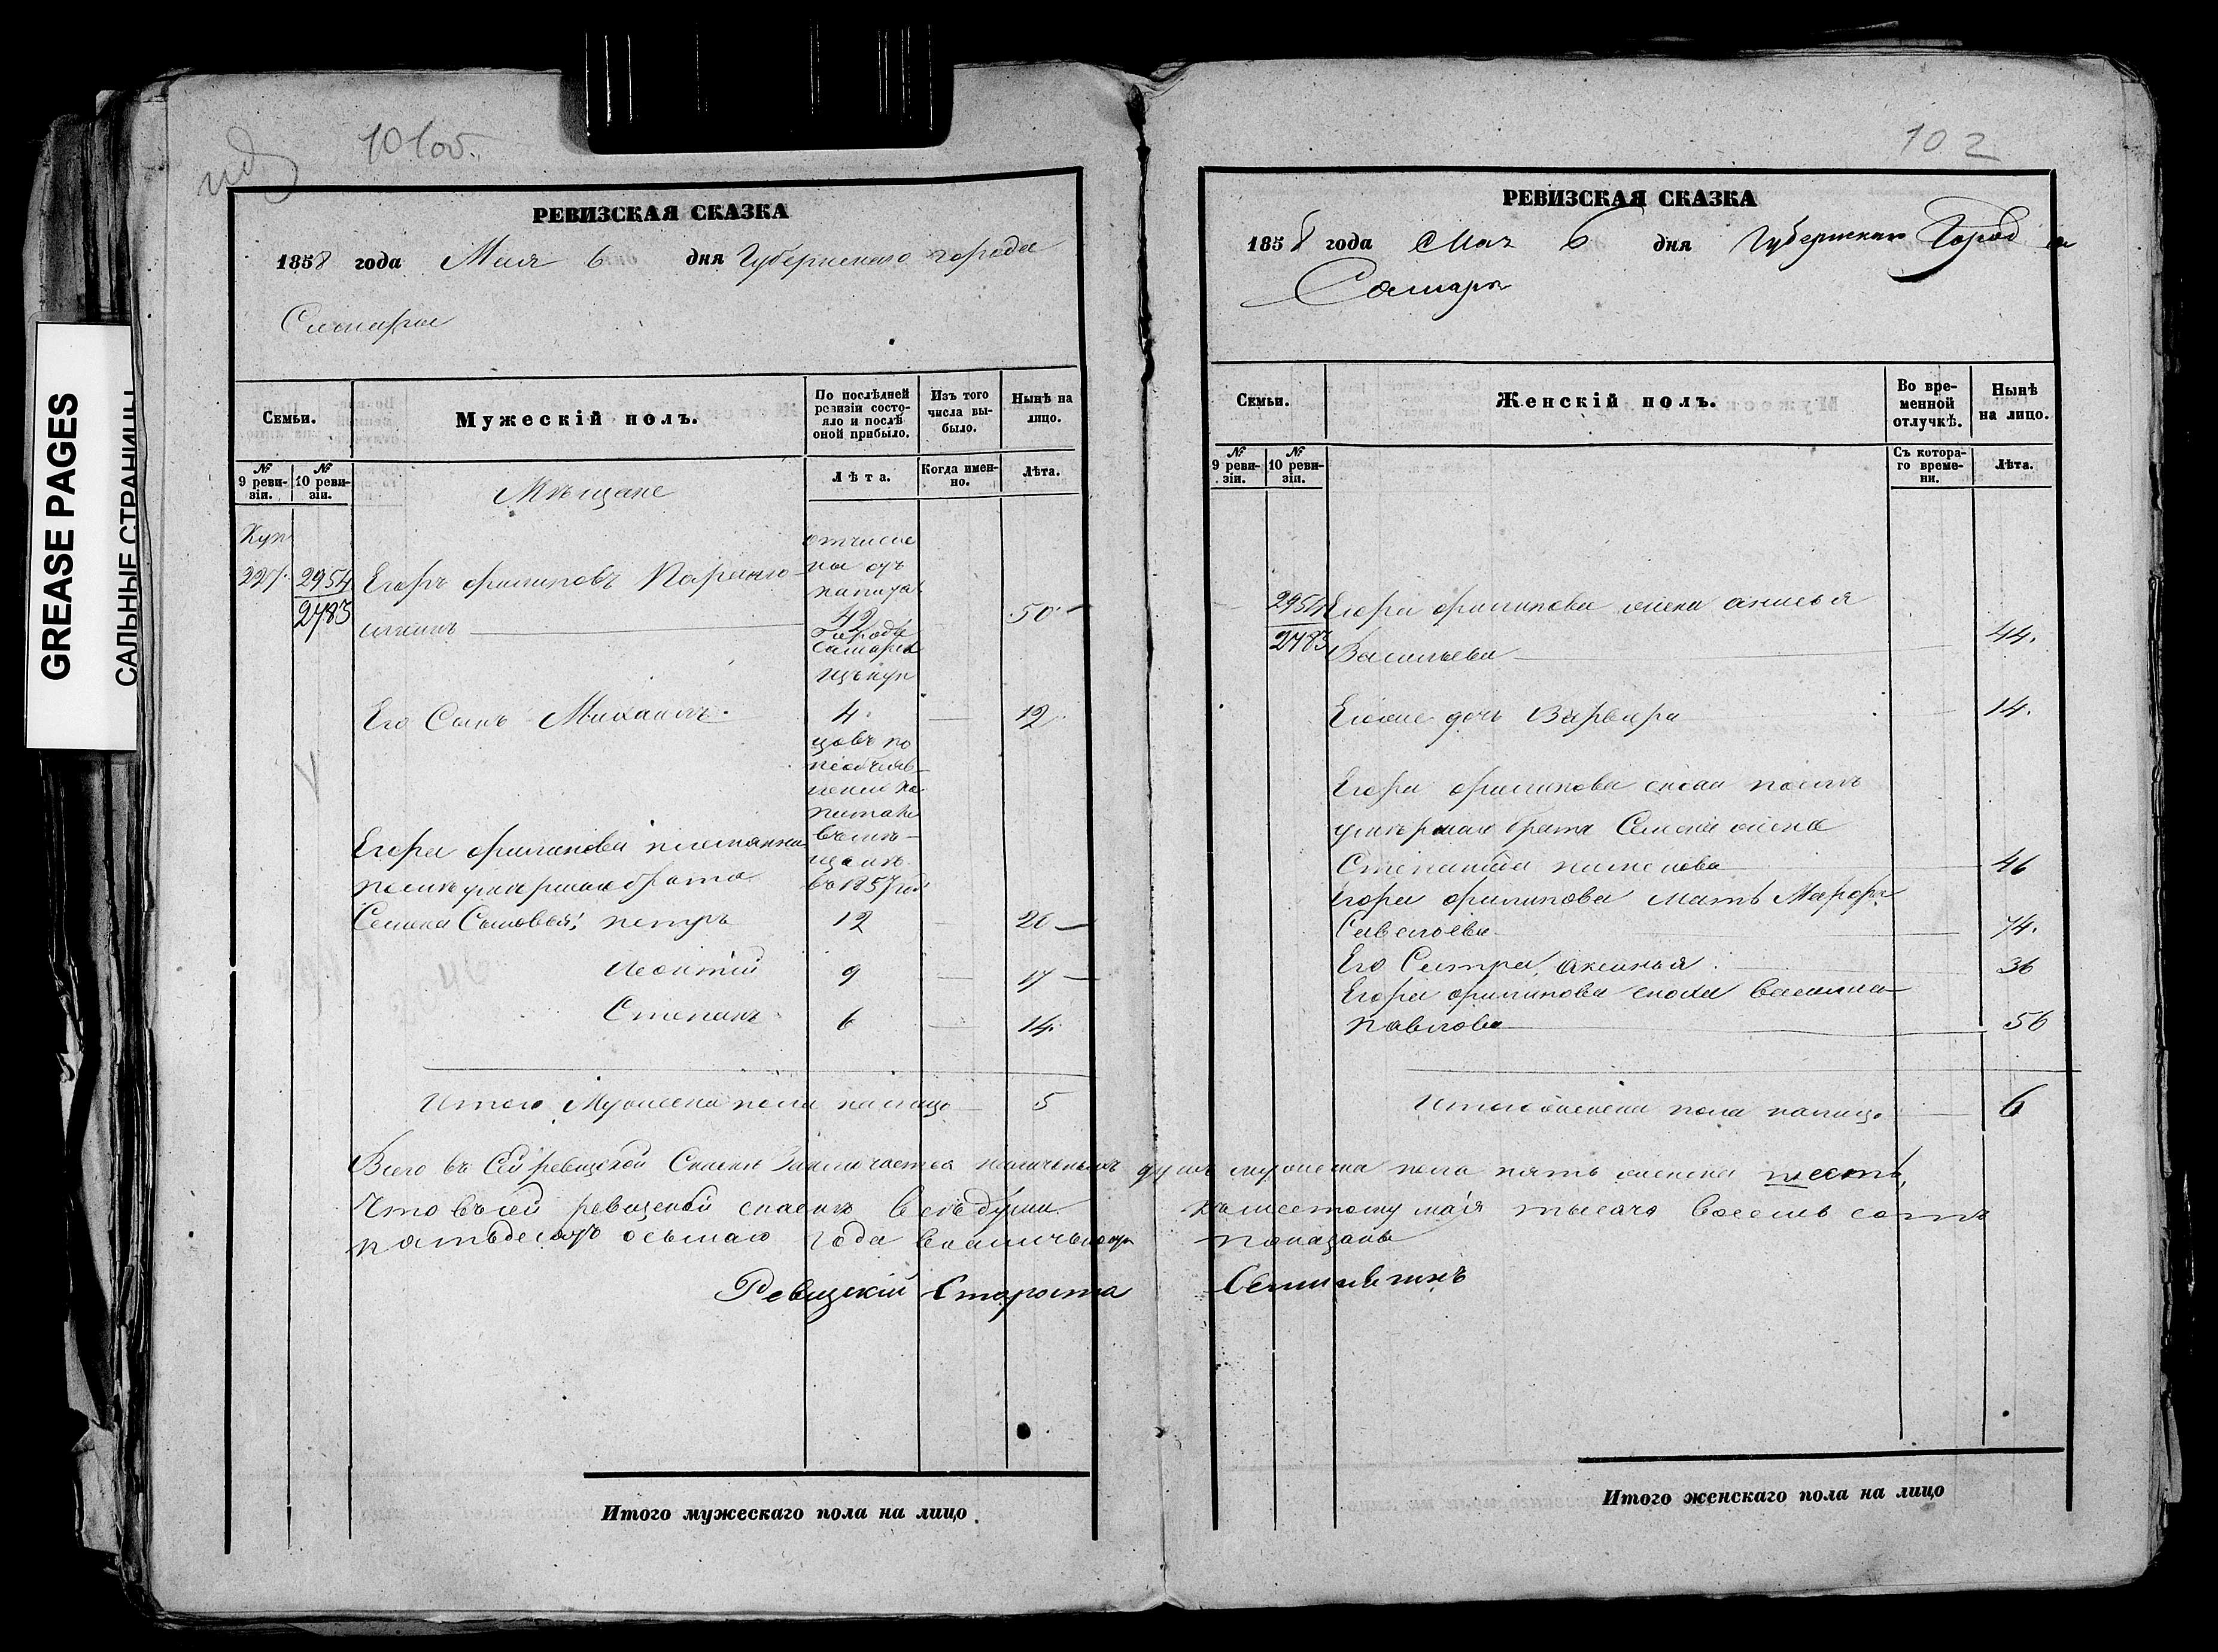 GREASE PAGES
САЛЬНЫЕ СТРАНИЦЫ
101об.
РЕВИЗСКАЯ СКАЗКА
1858 года Мая 6 дня Губернскаго города
Самары
Семьи.
Мужескій полъ.
По послѣдней ревизіи состояло и послѣ оной прибыло.
Изъ того числа выбыло.
Нынѣ на лицо.
№ 9 ревизіи.
№ 10 ревизіи.
Лѣта.
Когда именно.
Лѣта.
Мѣщане
Куп
227. 2954 Егоръ Филиповъ
2783 42 50
города
Самары
Его Сынъ Михаилъ. 4. 12.
Егора Филипова племянни
послѣ умершаго брата въ 1857 год
Семена Сыновья: Петръ 12 20
Леонтій 9 17
Степанъ 6 14
Итого Мужеска пола на лицо 5
Итого мужескаго пола на лицо
102
РЕВИЗСКАЯ СКАЗКА
1858 года Мая 6 дня Губернскаго Города
Самары
Семьи.
Женскій полъ.
Во временной отлучкѣ.
Нынѣ на лицо.
№ 9 ревизіи.
№ 10 ревизіи.
Съ котораго времени.
Лѣта.
2954 Егора Филипова жена Анисья
2783 Васильева 44.
дочь Варвара 14.
Егора Филипова сноха послѣ
умершаго брата Семена жена
Степанида 46
Егора Филипова мать Марфа
Савельева 74.
Его Сестра Аксинья 36
Егора Филипова сноха Василиса
Павлова 56
Итого женска пола на лицо 6
Всего въ Сей ревизской Сказкѣ Заключается наличныхъ душъ мужеска пола пять женска шесть,
Что въ сей ревизской сказкѣ всѣ души къ шестому мая тысяча восемь сотъ
пятьдесятъ осьмаго года въ наличности показаны
Ревизскій Староста
Итого женскаго пола на лицо